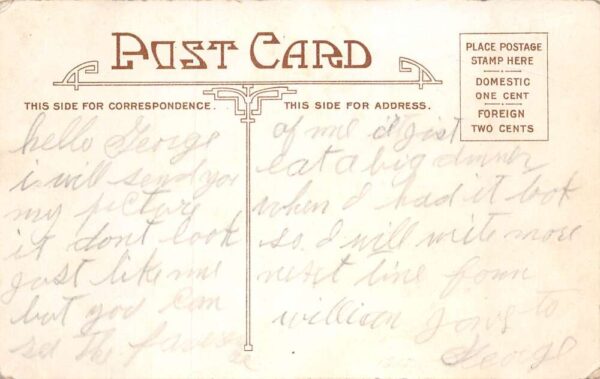 POST CARD
THIS SIDE FOR CORRESPONDENCE.
THIS SIDE FOR ADDRESS.
PLACE POSTAGE
STAMP HERE
DOMESTIC
ONE CENT
FOREIGN
TWO CENTS
hello George
i will send you
my picture
it dont look
just like me
but you can
see the
of me
eat a big dinner
when I had it look
so I will write more
next time from
william to
George